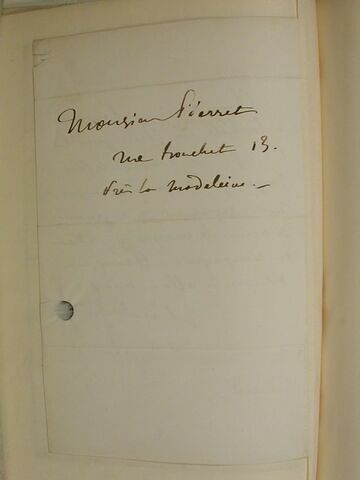 Monsieur Pierret
rue tronchet 13.
près la madeleine. —